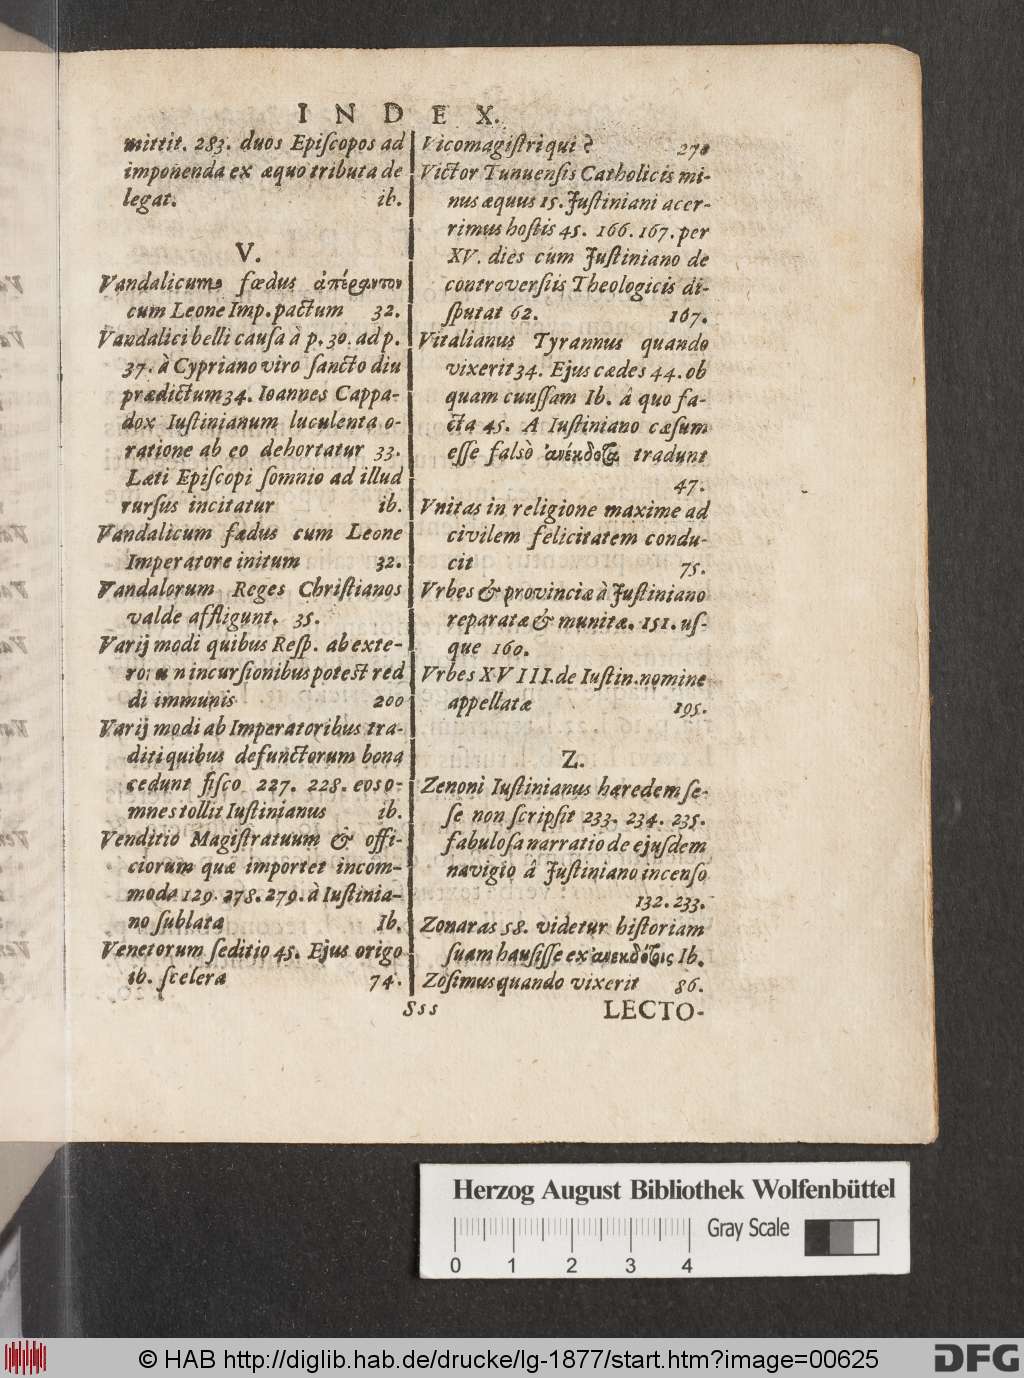 INDEX.
mittit. 283. duos Episcopos ad
imponenda ex æquo tributa de
legat. ib.
V.
Vandalicum fœdus ἀπέραντον
cum Leone Imp. pactum 32.
Vandalici belli causa à p. 30. ad p.
37. à Cypriano viro sancto diu
prædictum 34. Ioannes Cappa-
dox Iustinianum luculenta o-
ratione ab eo dehortatur 33.
Læti Episcopi somnio ad illud
rursus incitatur ib.
Vandalicum fædus cum Leone
Imperatore initum 32.
Vandalorum Reges Christianos
valde affligunt. 35.
Varij modi quibus Resp. ab exte-
rorum incursionibus potest red
di immunis 200
Varij modi ab Imperatoribus tra-
diti quibus defunctorum bona
cedunt fisco 227. 228. eos o-
mnes tollit Iustinianus ib.
Venditio Magistratuum & offi-
ciorum quæ importet incom-
moda 129. 278. 279. à Iustinia-
no sublata Ib.
Venetorum seditio 45. Ejus origo
ib. scelera 74.
Vicomagistri qui? 270
Victor Tunuensis Catholicis mi-
nus æquus 15. Justiniani acer-
rimus hostis 45. 166. 167. per
XV. dies cum Justiniano de
controversiis Theologicis di-
sputat 62. 167.
Vitalianus Tyrannus quando
vixerit 34. Ejus cædes 44. ob
quam cuussam Ib. â quo fa-
cta 45. A Iustiniano cæsum
esse falsò ἀνέκδοτα tradunt
47.
Vnitas in religione maxime ad
civilem felicitatem condu-
cit 75.
Vrbes & provinciæ à Justiniano
reparatæ & munitæ. 151. us-
que 160.
Vrbes XVIII. de Iustin. nomine
appellatæ 195.
Z.
Zenoni Iustinianus hæredem se-
se non scripsit 233. 234. 235.
fabulosa narratio de ejusdem
navigio â Justiniano incenso
132. 233.
Zonaras 58. videtur historiam
suam hausisse ex ἀνεκδότοις Ib.
Zosimus quando vixerit 86.
Sss LECTO-
Herzog August Bibliothek Wolfenbüttel
Gray Scale
0 1 2 3 4
© HAB http://diglib.hab.de/drucke/lg-1877/start.htm?image=00625
DFG